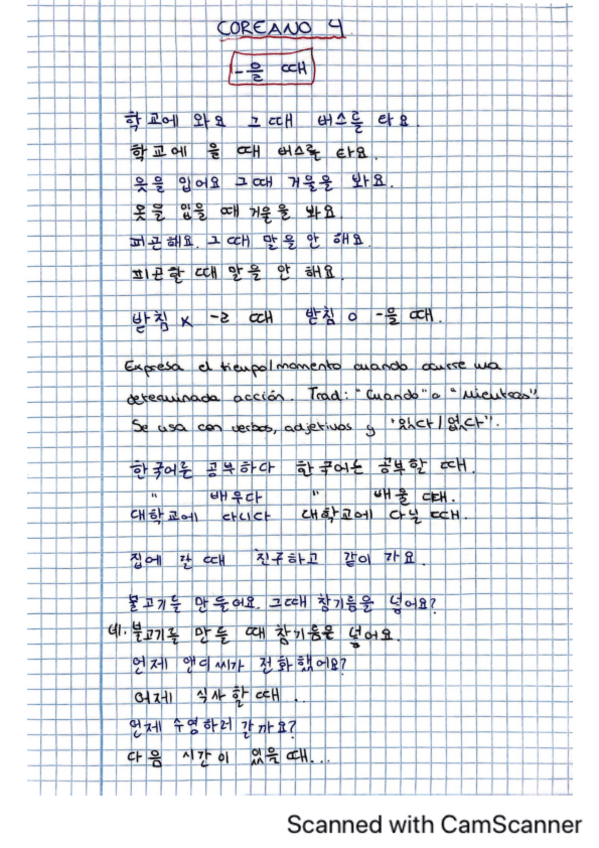 COREANO 4
-을 때
학교에 와요 그때 버스를 타요.
학교에 올 때 버스를 타요.
옷을 입어요 그때 거울을 봐요.
옷을 입을 때 거울을 봐요.
피곤해요. 그때 말을 안 해요.
피곤할 때 말을 안 해요.
받침 x -ㄹ 때 받침 o -을 때.
Expresa el tiempo/momento cuando ocurre una
determinada acción. Trad: "Cuando" o "Mientras".
Se usa con verbos, adjetivos y "있다/없다".
한국어를 공부하다 한국어를 공부할 때.
" 배우다 " 배울 때.
대학교에 다니다 대학교에 다닐 때.
집에 갈 때 친구하고 같이 가요.
불고기를 만들어요. 그때 참기름을 넣어요?
네. 불고기를 만들 때 참기름을 넣어요.
언제 앤디씨가 전화했어요?
어제 식사할 때...
언제 수영하러 갈까요?
다음 시간이 있을 때...
Scanned with CamScanner